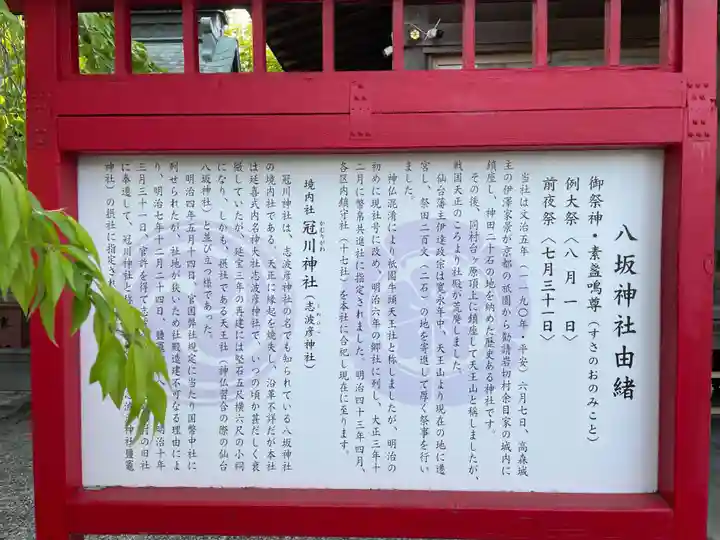 八坂神社由緒
御祭神・素盞嗚尊（すさのおのみこと）
例大祭〈八月一日〉
前夜祭〈七月三十一日〉
当社は文治五年（一一九〇年・平安）六月七日、高森城
主の伊澤家景が京都の祇園から勧請岩切村余目家の城内に
鎮座し、神田二十石の地を納めた歴史ある神社です。
その後、同村台ヶ原頂上に鎮座して天王山と称しましたが、
戦国天正のころより社殿が荒廃しました。
仙台藩主伊達政宗は寛永年中、天王山より現在の地に遷
宮し、祭田二百文（二石）の地を寄進して厚く祭事を行い
ました。
神仏混淆により祇園牛頭天王社と称しましたが、明治の
初めに現社号に改め、明治六年の郷社に列し、大正三年十
二月に幣帛共進社に指定されました。明治四十三年四月、
各区内鎮守社（十七社）を本社に合祀し現在に至ります。
境内社 冠川神社（志波彦神社）
かむりがわ
しわひこ
冠川神社は、志波彦神社の名でも知られている八坂神社
の境内社である。天正に縁起を焼失し、沿革不詳だが本社
は延喜式内名神大社志波彦神社で、いつの頃か甚だしく衰
微していたが、延宝三年の再建には堅石五尺横六尺の小祠
になり、しかも、摂社である天王社（神仏習合の際の仙台
八坂神社）と並び立つ様であった。
明治四年五月十四日、官国弊社規定に当たり国幣中社に
列せられたが、社地が狭いため社殿造建不可なる理由によ
り、明治七年十二月二十四日、鹽竈
明治十年
三月三十一日、官許を得て志
村の旧社
に奉遷して、冠川神社と
神社鹽竈
神社）の摂社に指定され